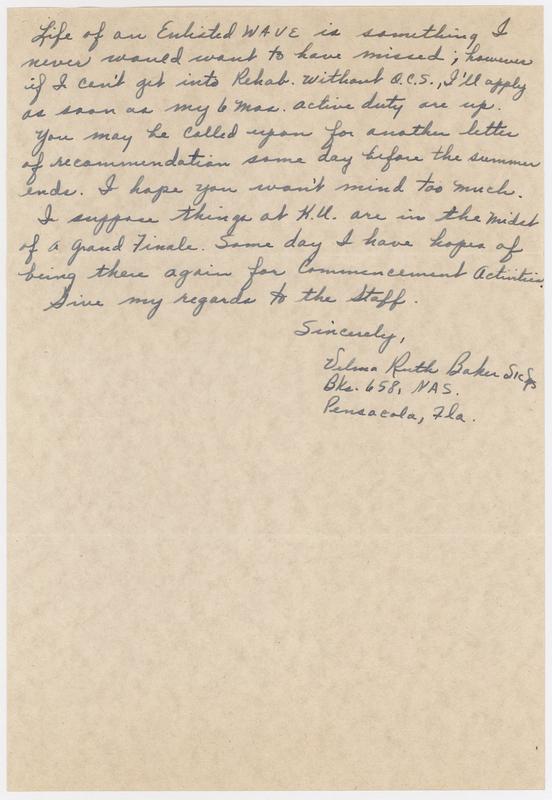 Life of an Enlisted WAVE is something I
never would want to have missed; however
if I can't get into Rehab. without O.C.S., I'll apply
as soon as my 6 mos. active duty are up.
You may be called upon for another letter
of recommendation some day before the summer
ends. I hope you won't mind too much.
I suppose things at H.U. are in the midst
of a Grand Finale. Some day I have hopes of
being there again for Commencement Activities.
Give my regards to the Staff.
Sincerely,
Velma Ruth Baker
Bks. 658, NAS.
Pensacola, Fla.